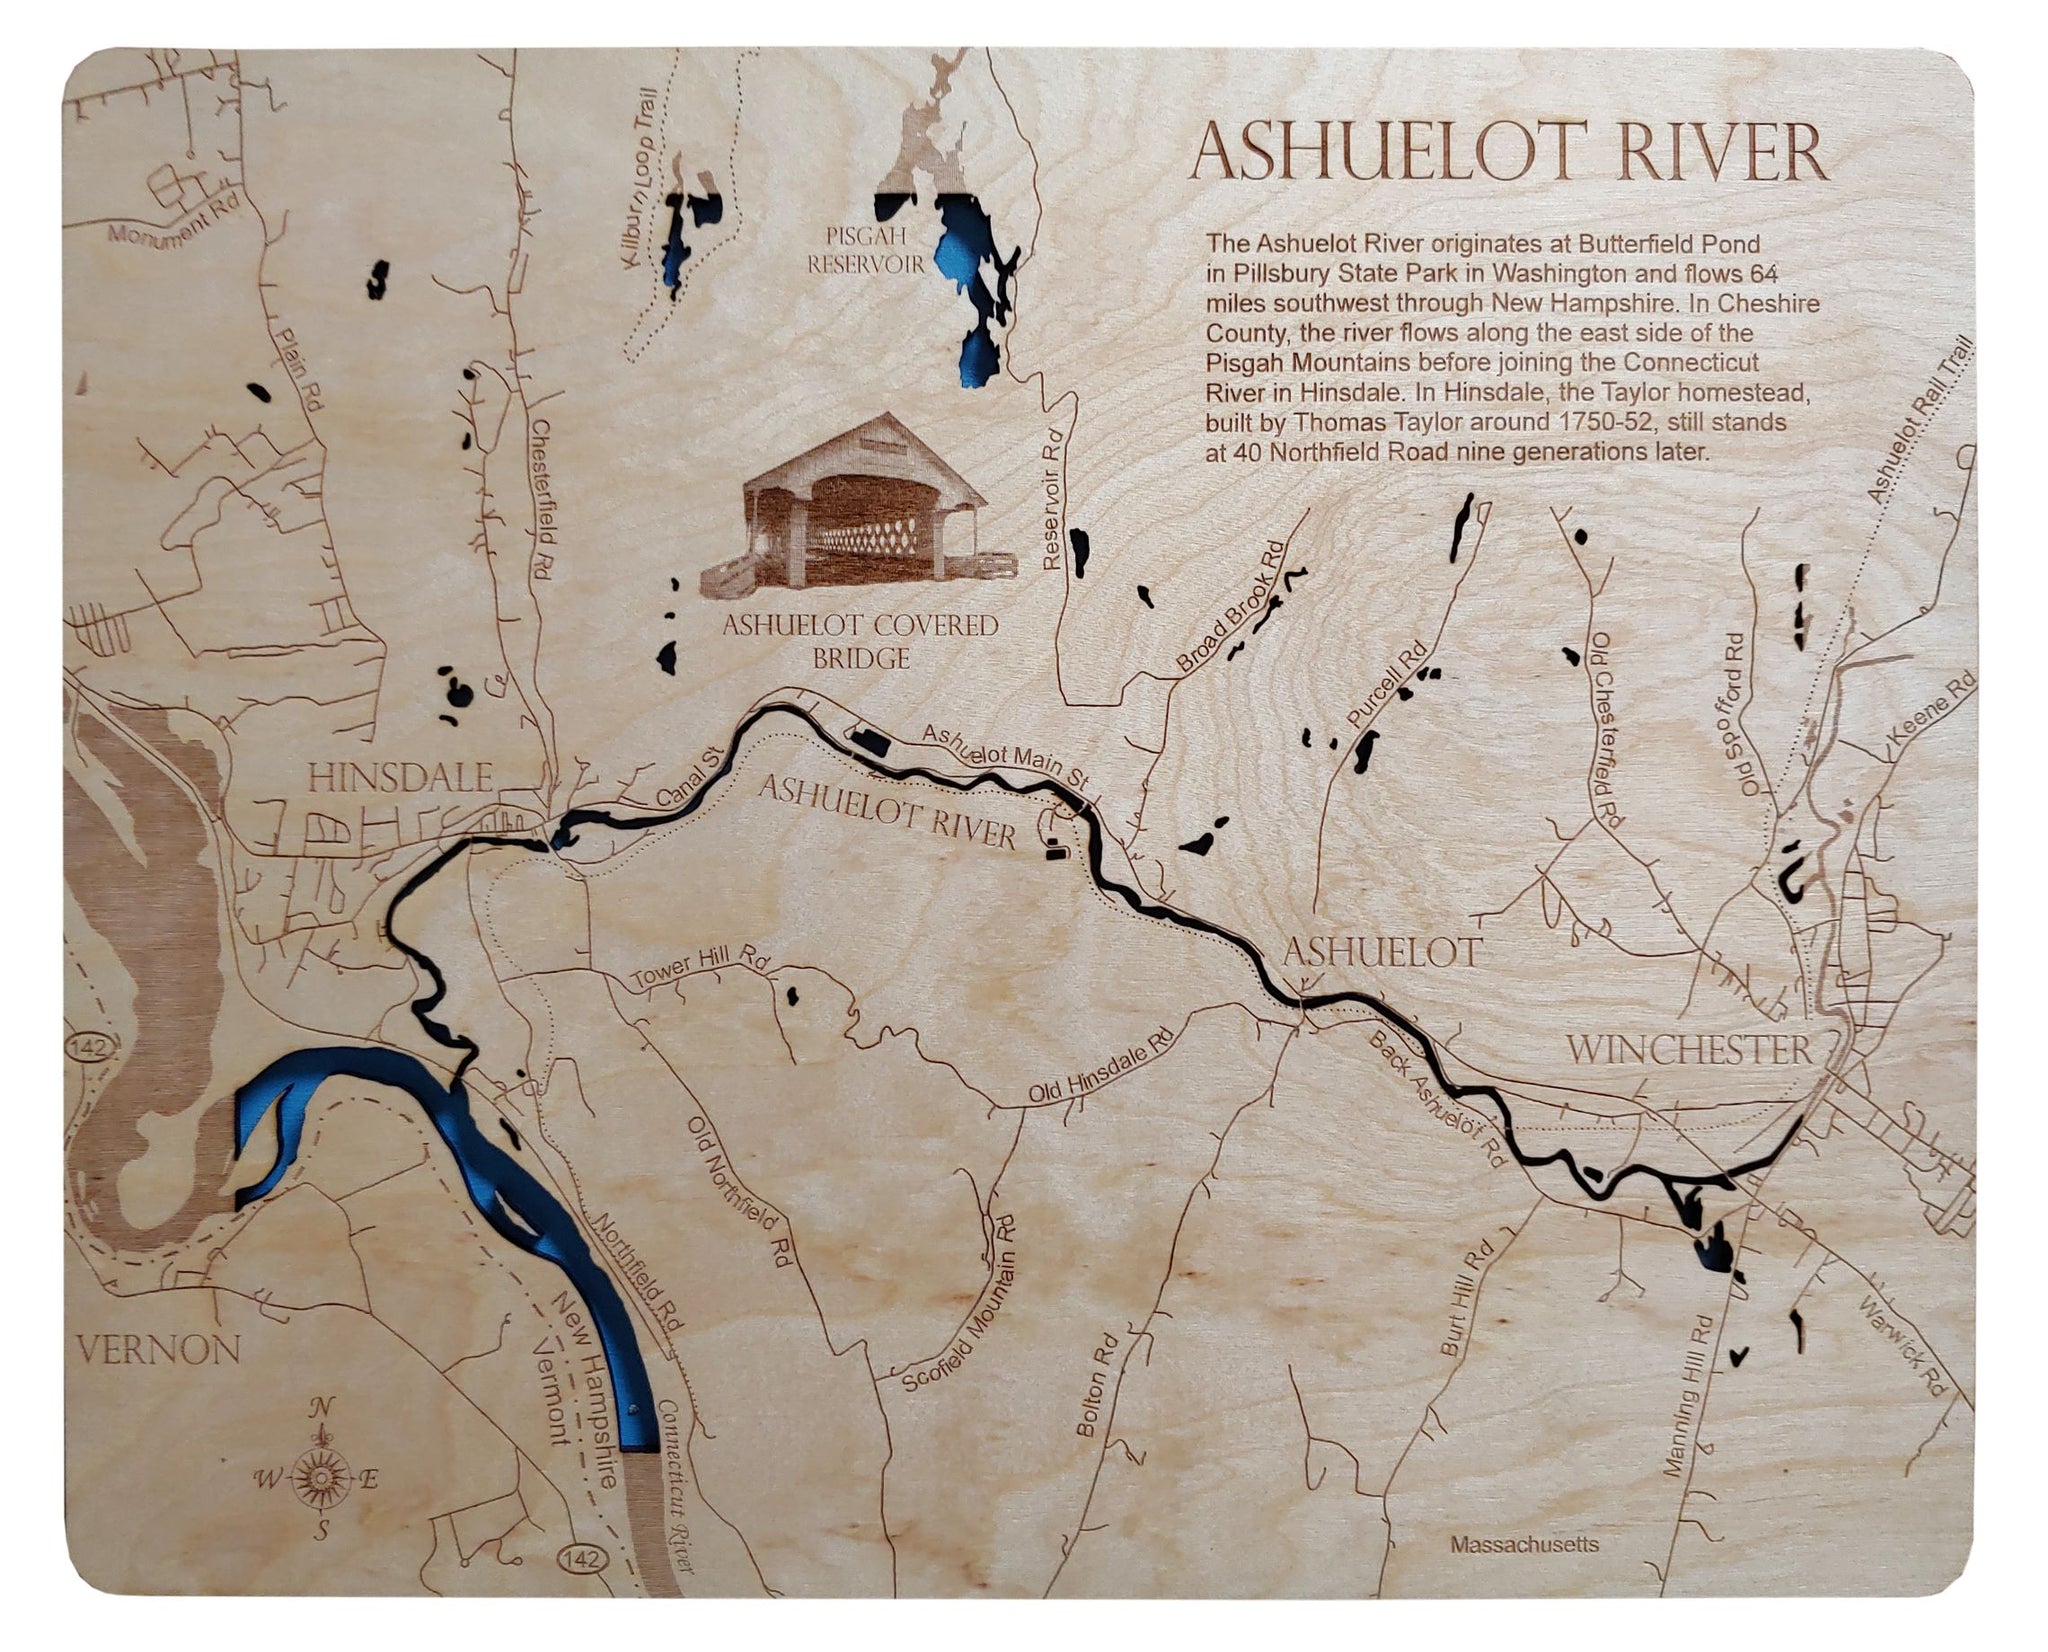 ASHUELOT RIVER
The Ashuelot River originates at Butterfield Pond
in Pillsbury State Park in Washington and flows 64
miles southwest through New Hampshire. In Cheshire
County, the river flows along the east side of the
Pisgah Mountains before joining the Connecticut
River in Hinsdale. In Hinsdale, the Taylor homestead,
built by Thomas Taylor around 1750-52, still stands
at 40 Northfield Road nine generations later.
Kilburn Loop Trail
Monument Rd
PISGAH
RESERVOIR
Plain Rd
Chesterfield Rd
Reservoir Rd
Ashuelot Rail Trail
ASHUELOT COVERED
BRIDGE
Broad Brook Rd
Purcell Rd
Old Chesterfield Rd
Old Spofford Rd
Keene Rd
HINSDALE
Canal St
Ashuelot Main St
ASHUELOT RIVER
ASHUELOT
Tower Hill Rd
WINCHESTER
142
Old Hinsdale Rd
Back Ashuelot Rd
Old Northfield Rd
Northfield Rd
Scofield Mountain Rd
Burt Hill Rd
Warwick Rd
VERNON
New Hampshire
Vermont
Bolton Rd
Manning Hill Rd
Connecticut River
N
W E
S
142
Massachusetts